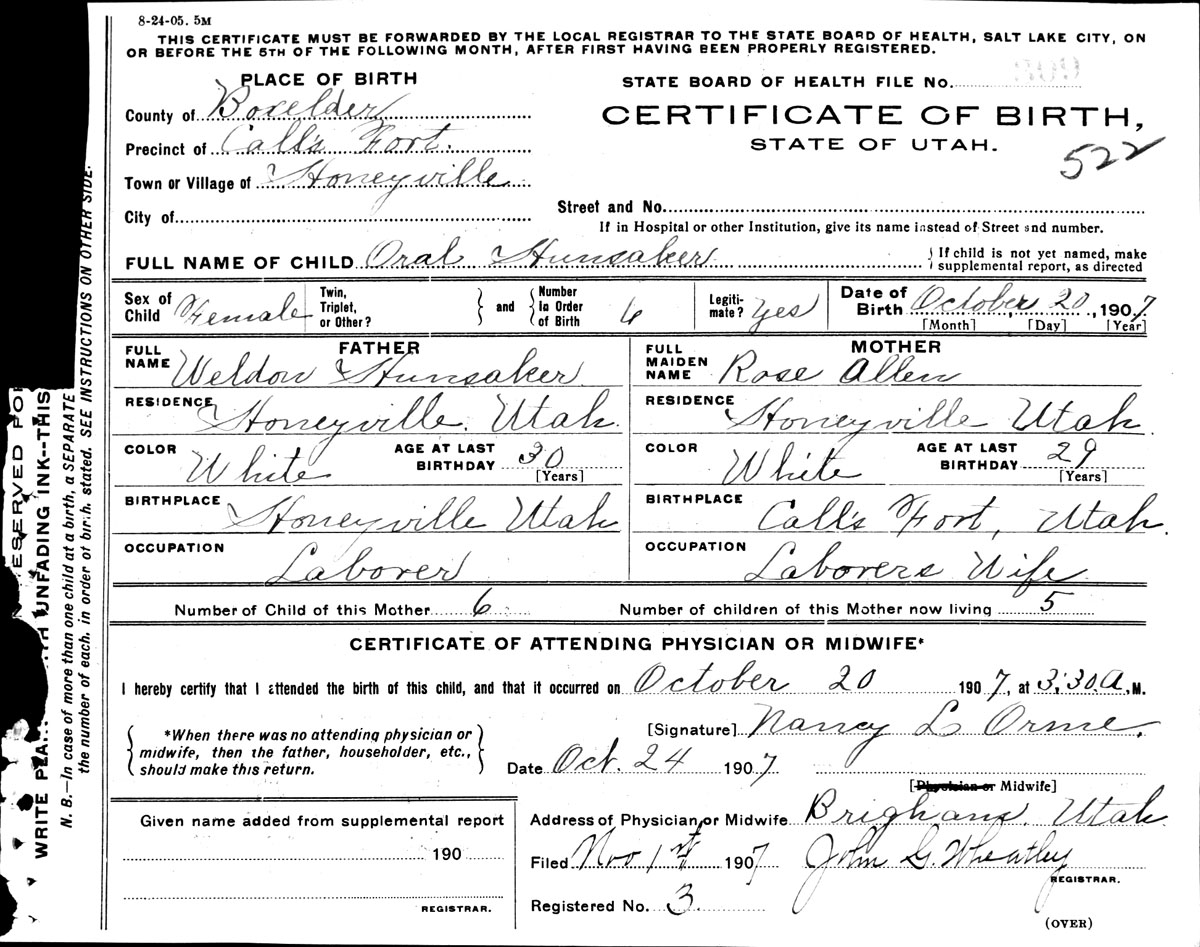 8-24-05. 5M
THIS CERTIFICATE MUST BE FORWARDED BY THE LOCAL REGISTRAR TO THE STATE BOARD OF HEALTH, SALT LAKE CITY, ON
OR BEFORE THE 5TH OF THE FOLLOWING MONTH, AFTER FIRST HAVING BEEN PROPERLY REGISTERED.
PLACE OF BIRTH
County of Boxelder
Precinct of Call's Fort.
Town or Village of Honeyville
City of
STATE BOARD OF HEALTH FILE No.
CERTIFICATE OF BIRTH,
STATE OF UTAH.
522
Street and No.
If in Hospital or other Institution, give its name instead of Street and number.
FULL NAME OF CHILD Oral Hunsaker
If child is not yet named, make
supplemental report, as directed
Sex of Child Female
Twin, Triplet, or Other?
and
Number in Order of Birth 6
Legiti- mate? Yes
Date of Birth October 20, 1907
[Month] [Day] [Year]
FATHER
FULL NAME Weldon Hunsaker
RESIDENCE Honeyville, Utah.
COLOR White
AGE AT LAST BIRTHDAY 30
[Years]
BIRTHPLACE Honeyville Utah
OCCUPATION Laborer
MOTHER
FULL MAIDEN NAME Rose Allen
RESIDENCE Honeyville Utah.
COLOR White
AGE AT LAST BIRTHDAY 29
[Years]
BIRTHPLACE Call's Fort, Utah.
OCCUPATION Laborers Wife
Number of Child of this Mother 6
Number of children of this Mother now living 5
CERTIFICATE OF ATTENDING PHYSICIAN OR MIDWIFE*
I hereby certify that I attended the birth of this child, and that it occurred on October 20 1907, at 3:30 A. M.
*When there was no attending physician or
midwife, then the father, householder, etc.,
should make this return.
[Signature] Nancy L Orme.
Date Oct. 24 1907
[Physician or Midwife]
Given name added from supplemental report
190
REGISTRAR.
Address of Physician or Midwife Brigham, Utah
Filed Nov 1st 1907 John G. Wheatley
REGISTRAR.
Registered No. 3
(OVER)
ESERVED FOR
WRITE PLA UNFADING INK--THIS
N. B.—In case of more than one child at a birth, a SEPARATE
the number of each, in order of birth, stated. SEE INSTRUCTIONS ON OTHER SIDE.